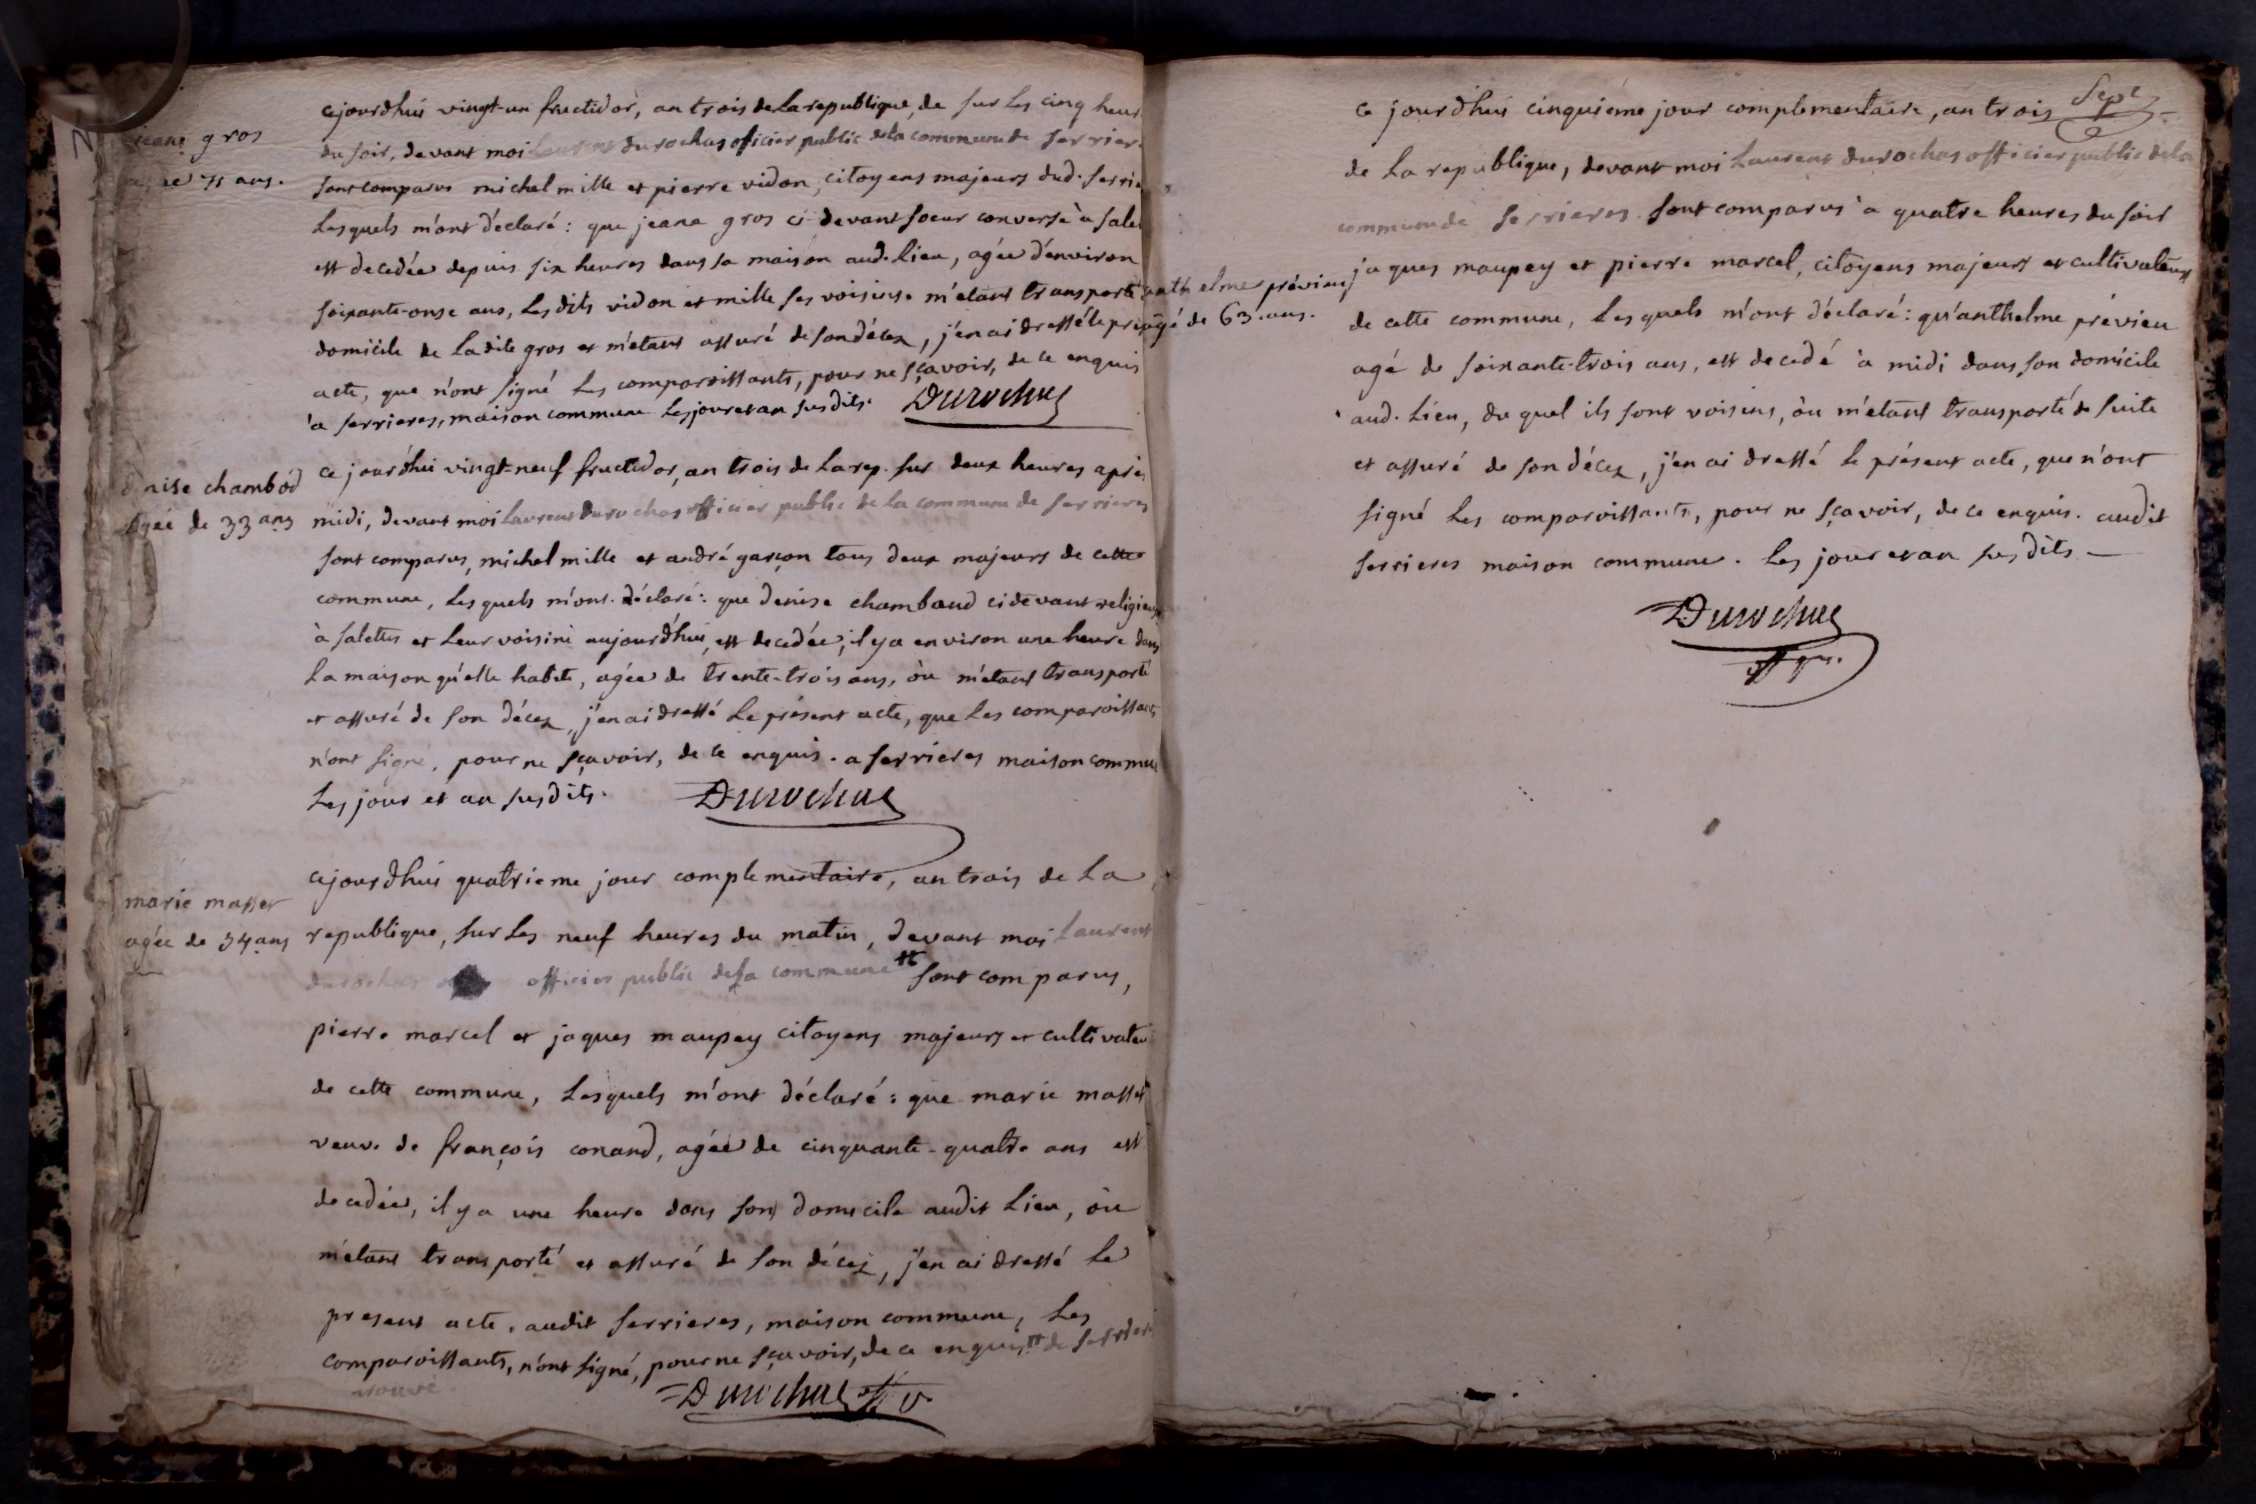 jeane gros
agée 71 ans.
cejourdhui vingt-un fructidor, an trois de la republique, de sur les cinq heur
du soir, devant moi laurent durochas oficier public de la commune de serrier
sont comparus michel mille et pierre vidon, citoyens majeurs dud. serrie
lesquels m'ont déclaré : que jeane gros ci devant soeur converse à sale
est decedée depuis six heures dans sa maison aud. lieu, agée d'environ
soixante-onse ans, les dits vidon et mille ses voisins. m'etant transporté
domicile de ladite gros et m'étant assuré de son décez, j'en ai dressé le pre
acte, que n'ont signé les comparoissants, pour ne sçavoir, de ce enquis
à serrieres, maison commune les jour et an susdits. Durochas
denise chambod
agée de 33 ans
ce jourd'hui vingt-neuf fructidor, an trois de la rep. sur deux heures après
midi, devant moi laurent durochas officier public de la commune de serrieres
sont comparus, michel mille et andré garçon tous deux majeurs de cette
commune, lesquels m'ont déclaré : que denise chambaud cidevant religieuse
à salettes et leur voisine aujourd'hui, est decedée, il y a environ une heure dans
la maison qu'elle habite, agée de trente-trois ans, òu m'étant transporté
et assuré de son décez, j'en ai dressé le présent acte, que les comparoissants
n'ont signé, pour ne sçavoir, de ce enquis. a serrieres maison commu
les jour et an susdits. Durochas
marie masset
agée de 54 ans
cejourdhui quatrieme jour complementaire, an trois de la
republique, sur les neuf heures du matin, devant moi laurent
durochas officier public de la commune sont comparus,
pierre marcel et jaques maupey citoyens majeurs et cultivateu
de cette commune, lesquels m'ont déclaré : que marie masset
veuve de françois conand, agée de cinquante-quatre ans est
decedée, il y a une heure dans son domicile audit lieu, òu
m'etant transporté et assuré de son décez, j'en ai dressé le
present acte, audit serrieres, maison commune, les
comparoissants, n'ont signé, pour ne sçavoir, de ce enquis de serrier
Durochas
Sept
anthelme prévieu
agé de 63. ans.
ce jourd'hui cinquiéme jour complementaire, an trois
de la republique, devant moi laurent durochas officier public de la
commune de serrieres sont comparus à quatre heures du soir
jaques maupey et pierre marcel, citoyens majeurs et cultivateurs
de cette commune, lesquels m'ont déclaré : qu'anthelme prévieu
agé de soixante-trois ans, est decedé à midi dans son domicile
aud. lieu, du quel ils sont voisins, òu m'etant transporté de suite
et assuré de son décez, j'en ai dressé le présent acte, que n'ont
signé les comparoissants, pour ne sçavoir, de ce enquis. audit
serrieres maison commune. les jour et an susdits —
Durochas